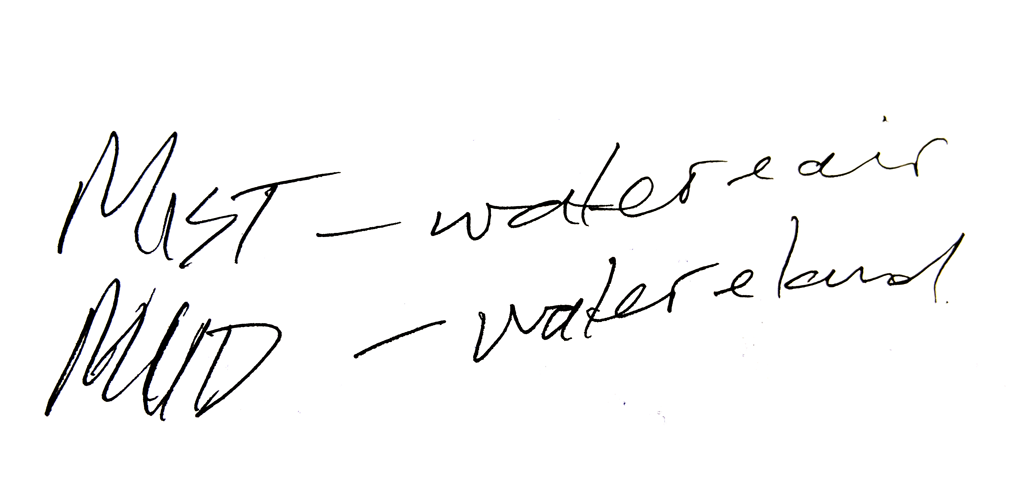 MIST - water e air
MUD - water e land